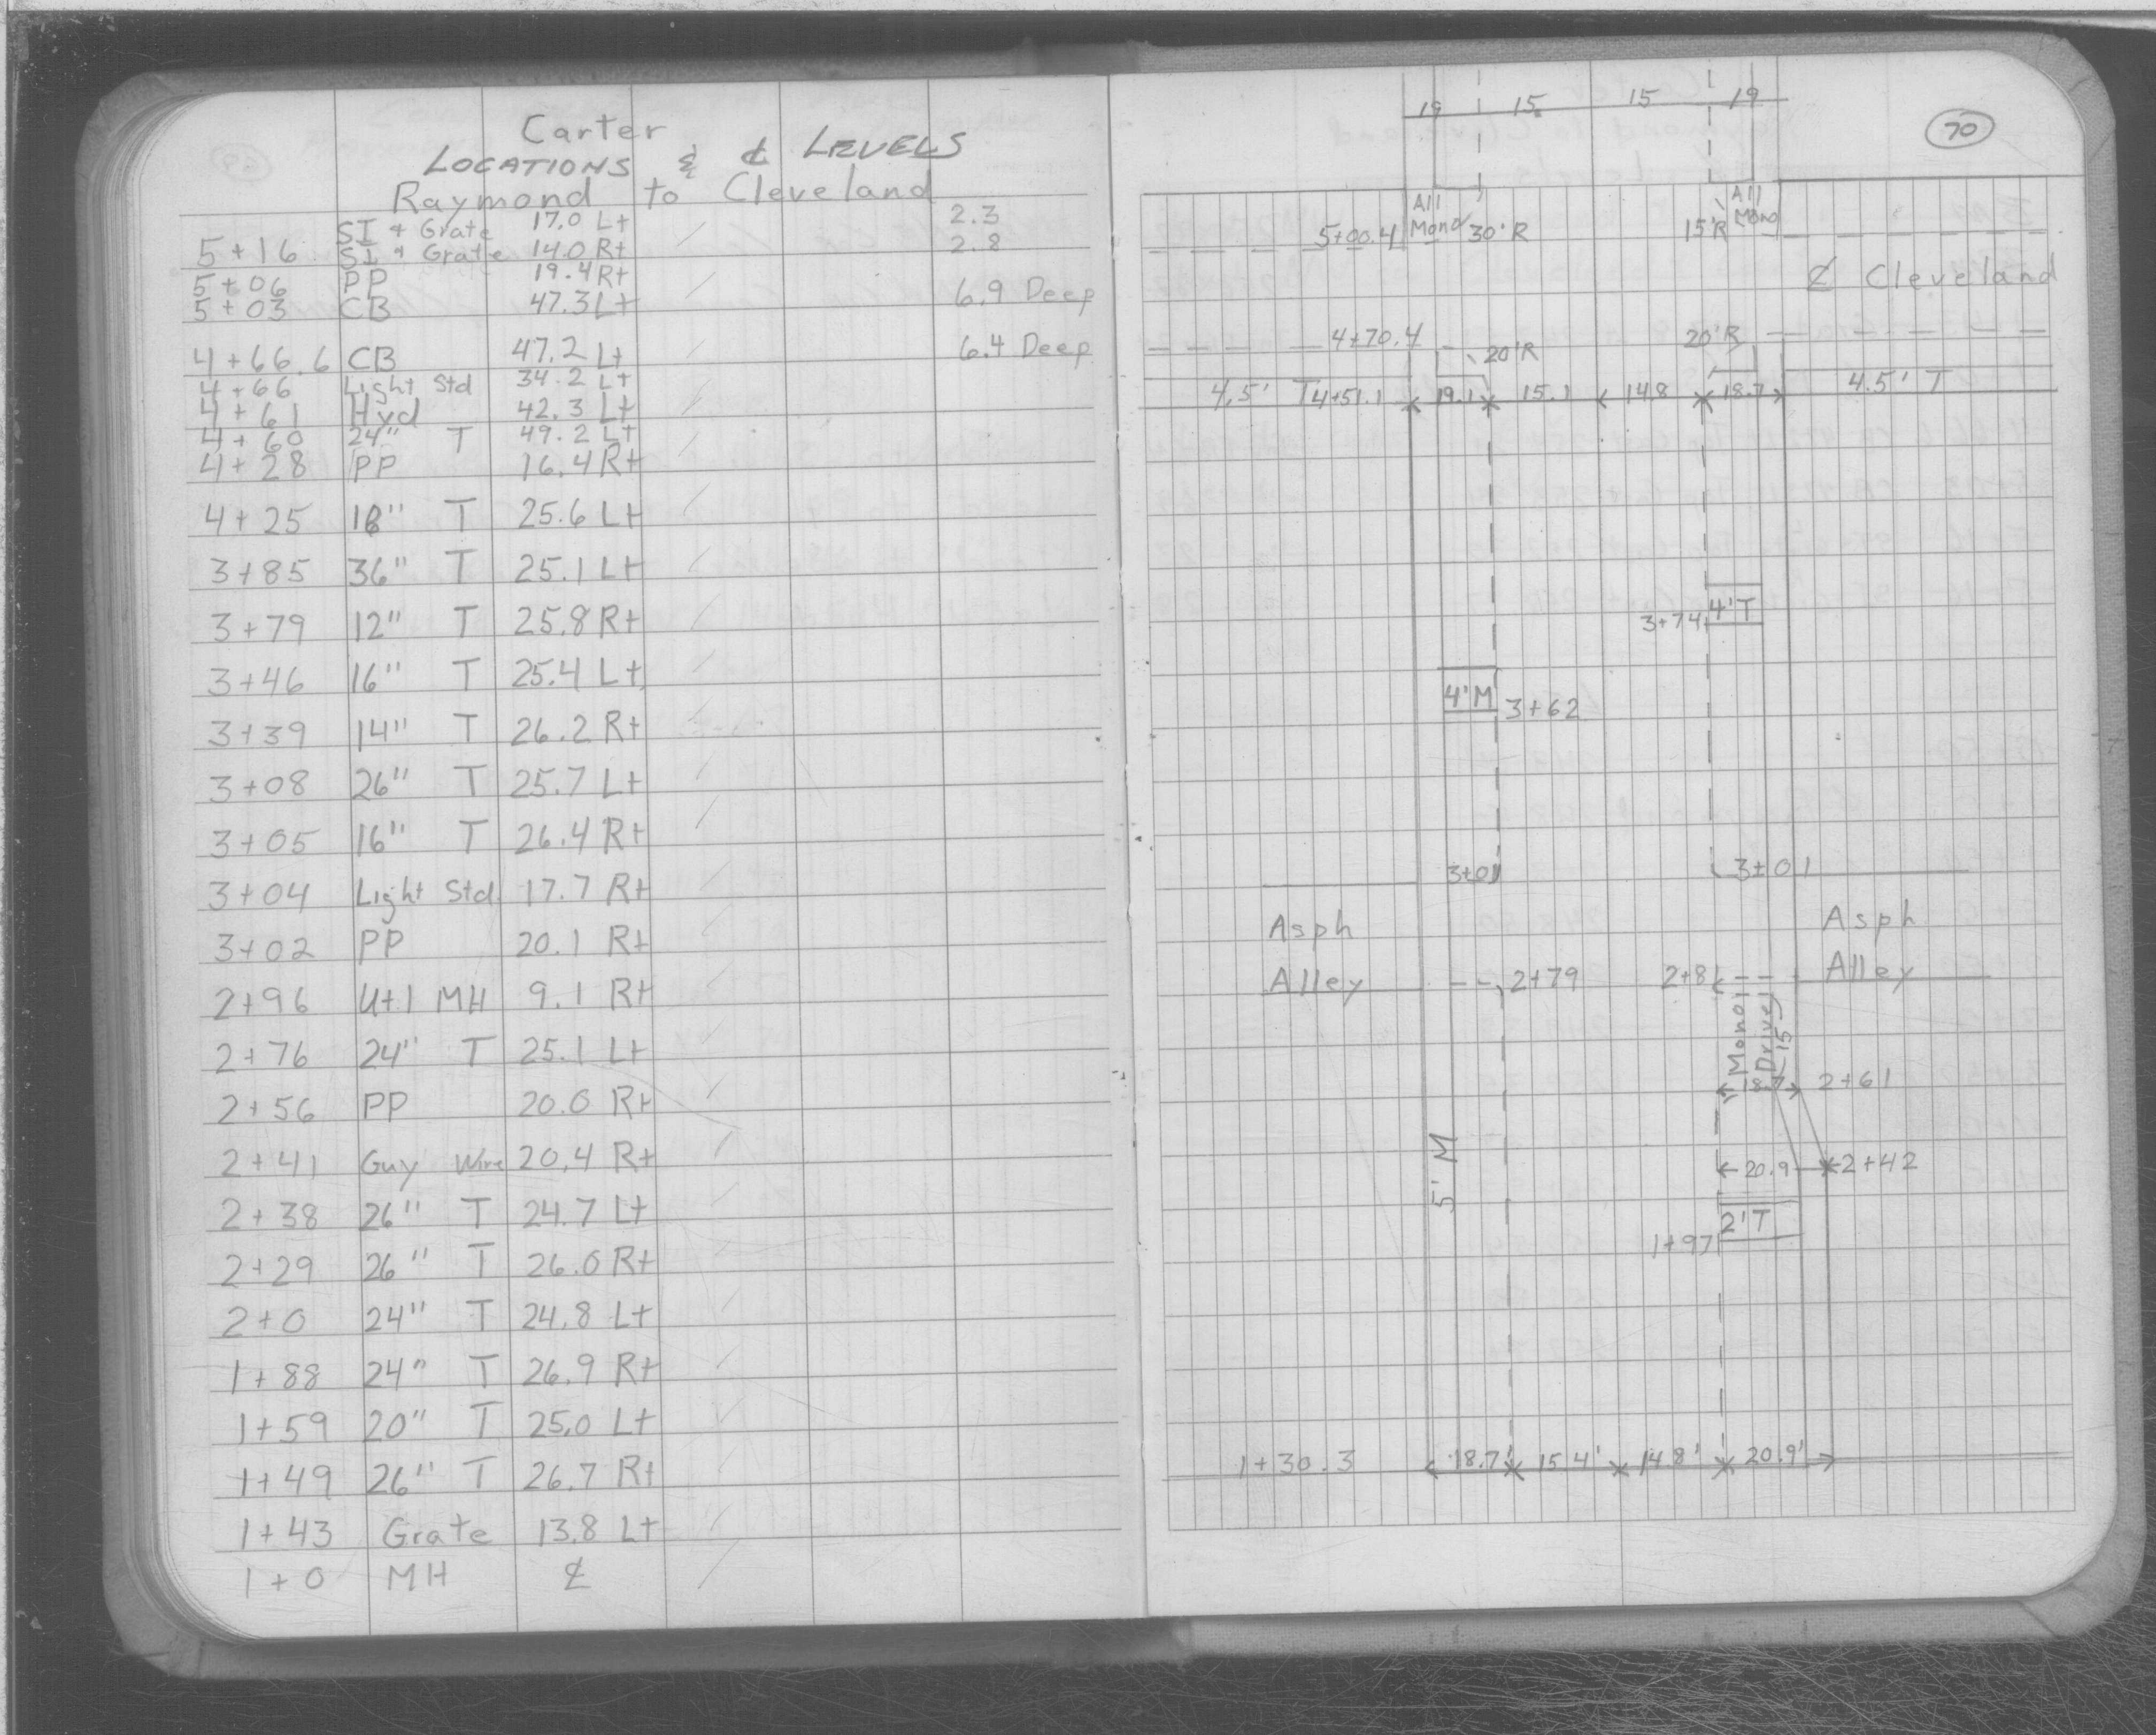 Carter
LOCATIONS & ₵ LEVELS
Raymond to Cleveland
SI + Grate 17.0 Lt 2.3
5+16 SI + Grate 14.0 Rt 2.8
5+06 PP 19.4 Rt
5+03 CB 47.3 Lt 6.9 Deep
4+66.6 CB 47.2 Lt 6.4 Deep
4+66 Light Std 34.2 Lt
4+61 Hyd 42.3 Lt
4+60 24" T 49.2 Lt
4+28 PP 16.4 Rt
4+25 18" T 25.6 Lt
3+85 36" T 25.1 Lt
3+79 12" T 25.8 Rt
3+46 16" T 25.4 Lt
3+39 14" T 26.2 Rt
3+08 26" T 25.7 Lt
3+05 16" T 26.4 Rt
3+04 Light Std. 17.7 Rt
3+02 PP 20.1 Rt
2+96 Utl MH 9.1 Rt
2+76 24" T 25.1 Lt
2+56 PP 20.0 Rt
2+41 Guy Wire 20.4 Rt
2+38 26" T 24.7 Lt
2+29 26" T 26.0 Rt
2+0 24" T 24.8 Lt
1+88 24" T 26.9 Rt
1+59 20" T 25.0 Lt
1+49 26" T 26.7 Rt
1+43 Grate 13.8 Lt
1+0 MH ₵
70
19 15 15 19
All All
5+00.4 Mono 30'R 15'R Mono
₵ Cleveland
4+70.4 20'R
20'R
4.5' T 4+51.1 19.1 15.1 14.8 18.7 4.5' T
3+74 4'T
4'M 3+62
3+01 3+01
Asph Asph
Alley 2+79 2+81 Alley
Mono
Drive
15
18.7 2+61
5' M
20.9 2+42
2'T
1+97
1+30.3 18.7' 15.4' 14.8' 20.9'